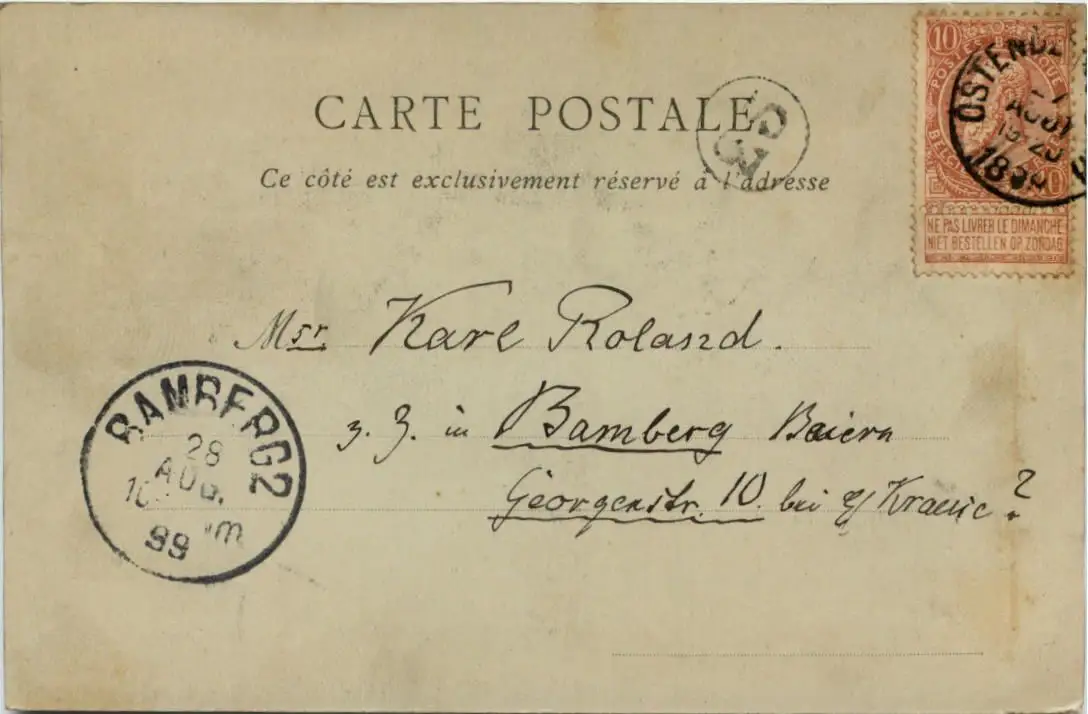 CARTE POSTALE
Ce côté est exclusivement réservé à l'adresse
10
POSTES BELGIQUE
OSTENDE
AOUT
1899
NE PAS LIVRER LE DIMANCHE
NIET BESTELLEN OP ZONDAG
Msr Karl Roland.
z. Z. in Bamberg Baiern
Georgenstr. 10. bei
?
BAMBERG 2
28
AUG.
99